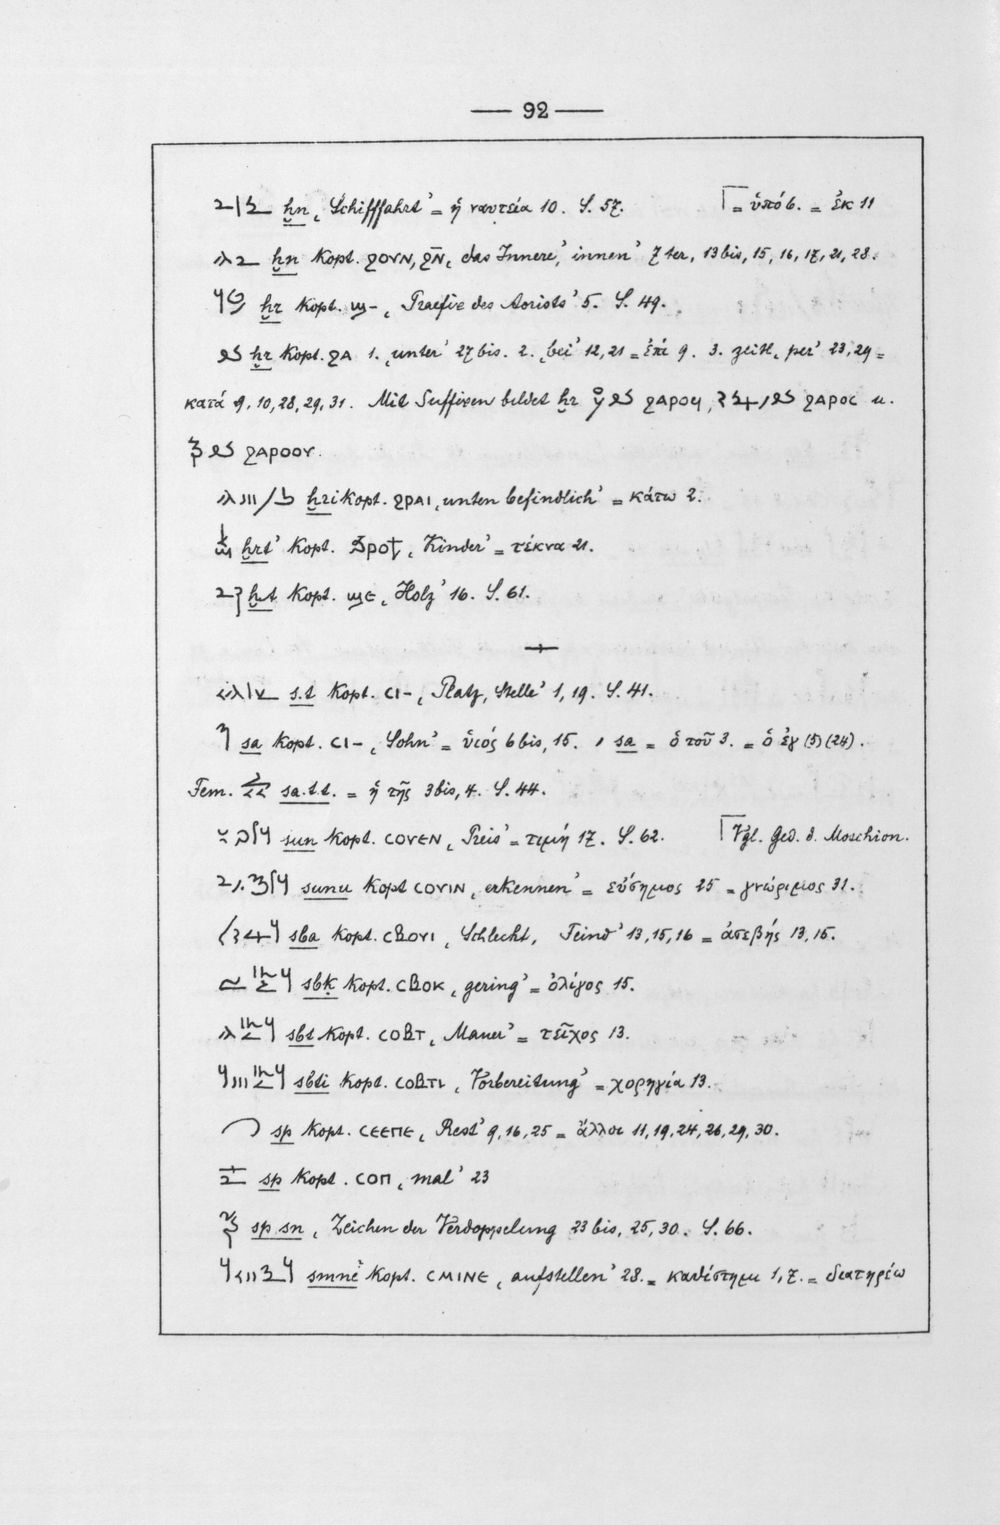 — 92 —
ẖn ‚Schifffahrt’ = ἡ ναυτεία 10. S. 57. = ὑπό 6. = ἐκ 11
ẖn Kopt. ϩΟΥΝ, ϩN̄, ‚das Innere’, innen’ 7 ter, 13 bis, 15, 16, 17, 21, 28.
ẖr Kopt. ϣ-, ‚Praefix des Aorists’ 5. S. 49.
ẖr Kopt. ϩΑ 1. ‚unter’ 27 bis. 2. ‚bei’ 12, 21 = ἐπί 9. 3. zeitl. ‚per’ 23, 29 =
κατά 9, 10, 28, 29, 31. Mit Suffixen bildet ẖr ϩΑΡΟϤ, ϩΑΡΟC u.
ϩΑΡΟΟΥ.
ẖri Kopt. ϩΡΑΙ, ‚unten befindlich’ = κάτω 2.
ẖrt’ Kopt. ϦΡΟϮ, ‚Kinder’ = τέκνα 21.
ẖt Kopt. ϣЄ, ‚Holz’ 16. S. 61.
s.t Kopt. CΙ-, ‚Platz, Stelle’ 1, 19. S. 41.
sa Kopt. CΙ-, ‚Sohn’ = ὑιός 6 bis, 15. sa = ὁ τοῦ 3. = ὁ ἐγ (5) (24).
Fem. sa.t.t. = ἡ τῆς 3 bis, 4. S. 44.
sun Kopt. CΟΥЄΝ, ‚Preis’ = τιμή 17. S. 62. Vgl. Ged. d. Moschion.
sunu Kopt CΟΥΙΝ, ‚erkennen’ = εὔσημος 25 = γνώριμος 31.
sba Kopt. CⲂΟΥΙ, ‚Schlecht, Feind’ 13, 15, 16 = ἀσεβής 13, 15.
sbḳ Kopt. CⲂΟΚ, ‚gering’ = ὀλίγος 15.
sbt Kopt. CΟⲂΤ, ‚Mauer’ = τεῖχος 13.
sbti Kopt. CΟⲂΤΙ, ‚Vorbereitung’ = χορηγία 13.
sp Kopt. CЄЄΠЄ, ‚Rest’ 9, 16, 25 = ἄλλοι 11, 19, 24, 26, 29, 30.
sp Kopt. CΟΠ, ‚mal’ 23
sp sn, ‚Zeichen der Verdoppelung 23 bis, 25, 30. S. 66.
smne Kopt. CΜΙΝЄ, ‚aufstellen’ 28. = καθίστημι 1, 7. = διατηρέω